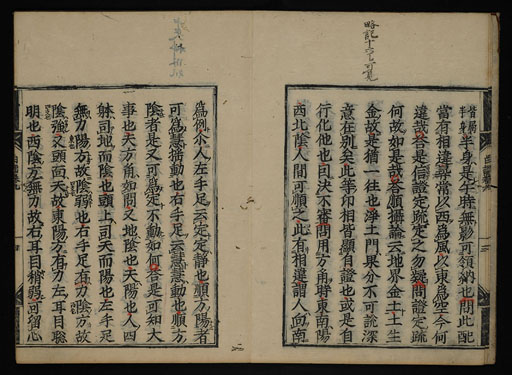 半身是午時無影可領納也問此配
當有相違哉當以西為風以東為空今何
違哉答是信證定疏定之勿疑問證定疏
何故如是哉答願攝論云地界金土土生
金故是猶一往也淨土門果分不可說深
意在別矣此華印相皆顯自證也或是自
行化他也自決不審問用方角時東南陽
西北陰人間可順之此有相違謂人向南
為例小人左手足云定定靜也順方陽者
可為慧猶動也右手足云慧慧動也順方
陰者是又可為定不動如何答是可知大
事也天方角如問又地陰也天陽也人四
躰司地而陰也頭上司天而陽也左手足
無力陽方故陰弱也右手足有力陰方故
陰強又頭面天故東陽方有力左耳目聡
明也西陰方無力故右耳目稍弱可留心